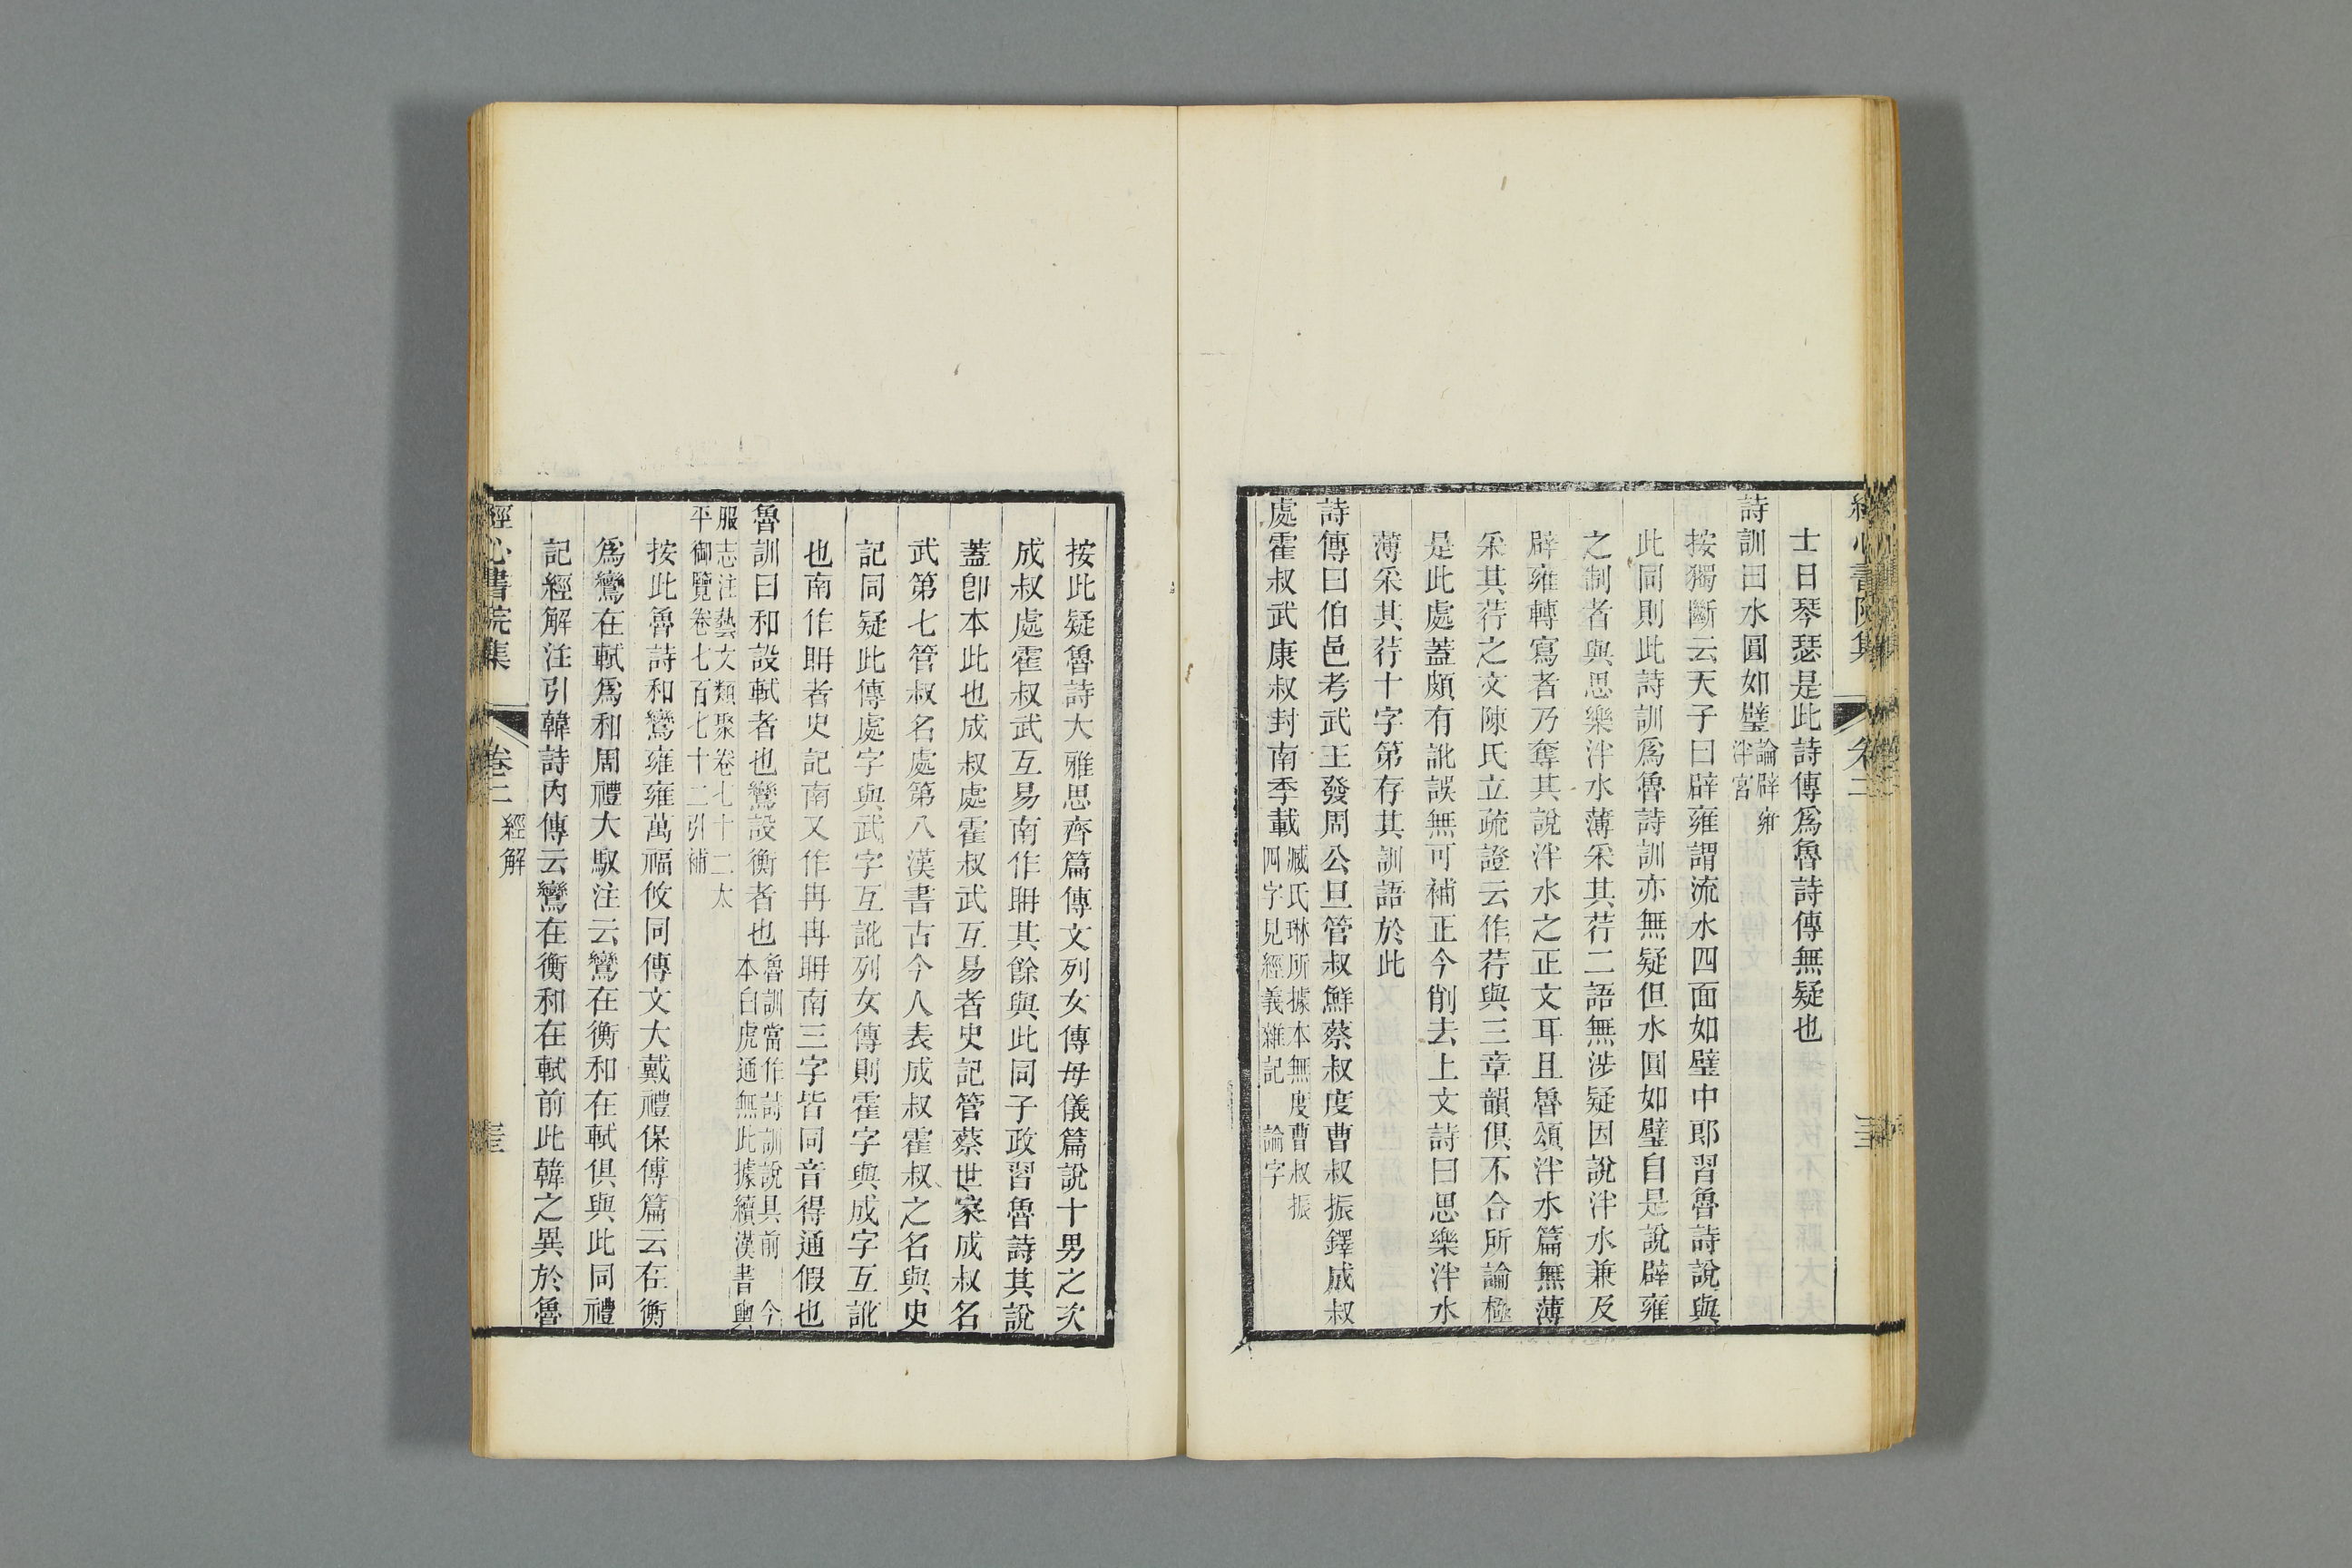 士日琴瑟是此詩傳爲魯詩傳無疑也
詩訓曰水圓如璧論辟雍泮宮
按獨斷云天子曰辟雍謂流水四面如璧中郎習魯詩說與
此同則此詩訓爲魯詩訓亦無疑但水圓如璧自是說辟雍
之制者與思樂泮水薄采其荇二語無涉疑因說泮水兼及
辟雍轉寫者乃奪其說泮水之正文耳且魯頌泮水篇無薄
采其荇之文陳氏立疏證云作荇與三章韻俱不合所論極
是此處蓋頗有訛誤無可補正今削去上文詩曰思樂泮水
薄采其荇十字第存其訓語於此
詩傳曰伯邑考武王發周公旦管叔鮮蔡叔度曹叔振鐸成叔
處霍叔武康叔封南季載臧氏琳所據本無度曹叔振四字見經義雜記 論字
按此疑魯詩大雅思齊篇傳文列女傳母儀篇說十男之次
成叔處霍叔武互易南作聃其餘與此同子政習魯詩其說
蓋卽本此也成叔處霍叔武互易者史記管蔡世家成叔名
武第七管叔名處第八漢書古今人表成叔霍叔之名與史
記同疑此傳處字與武字互訛列女傳則霍字與成字互訛
也南作聃者史記南又作冉冉聃南三字皆同音得通假也
魯訓曰和設軾者也鸞設衡者也魯訓當作詩訓說具前 今本白虎通無此據續漢書輿
服志注藝文類聚卷七十二太平御覽卷七百七十二引補
按此魯詩和鸞雍雍萬福攸同傳文大戴禮保傅篇云在衡
爲鸞在軾爲和周禮大馭注云鸞在衡和在軾俱與此同禮
記經解注引韓詩內傳云鸞在衡和在軾前此韓之異於魯
經心書院集
卷二
經解